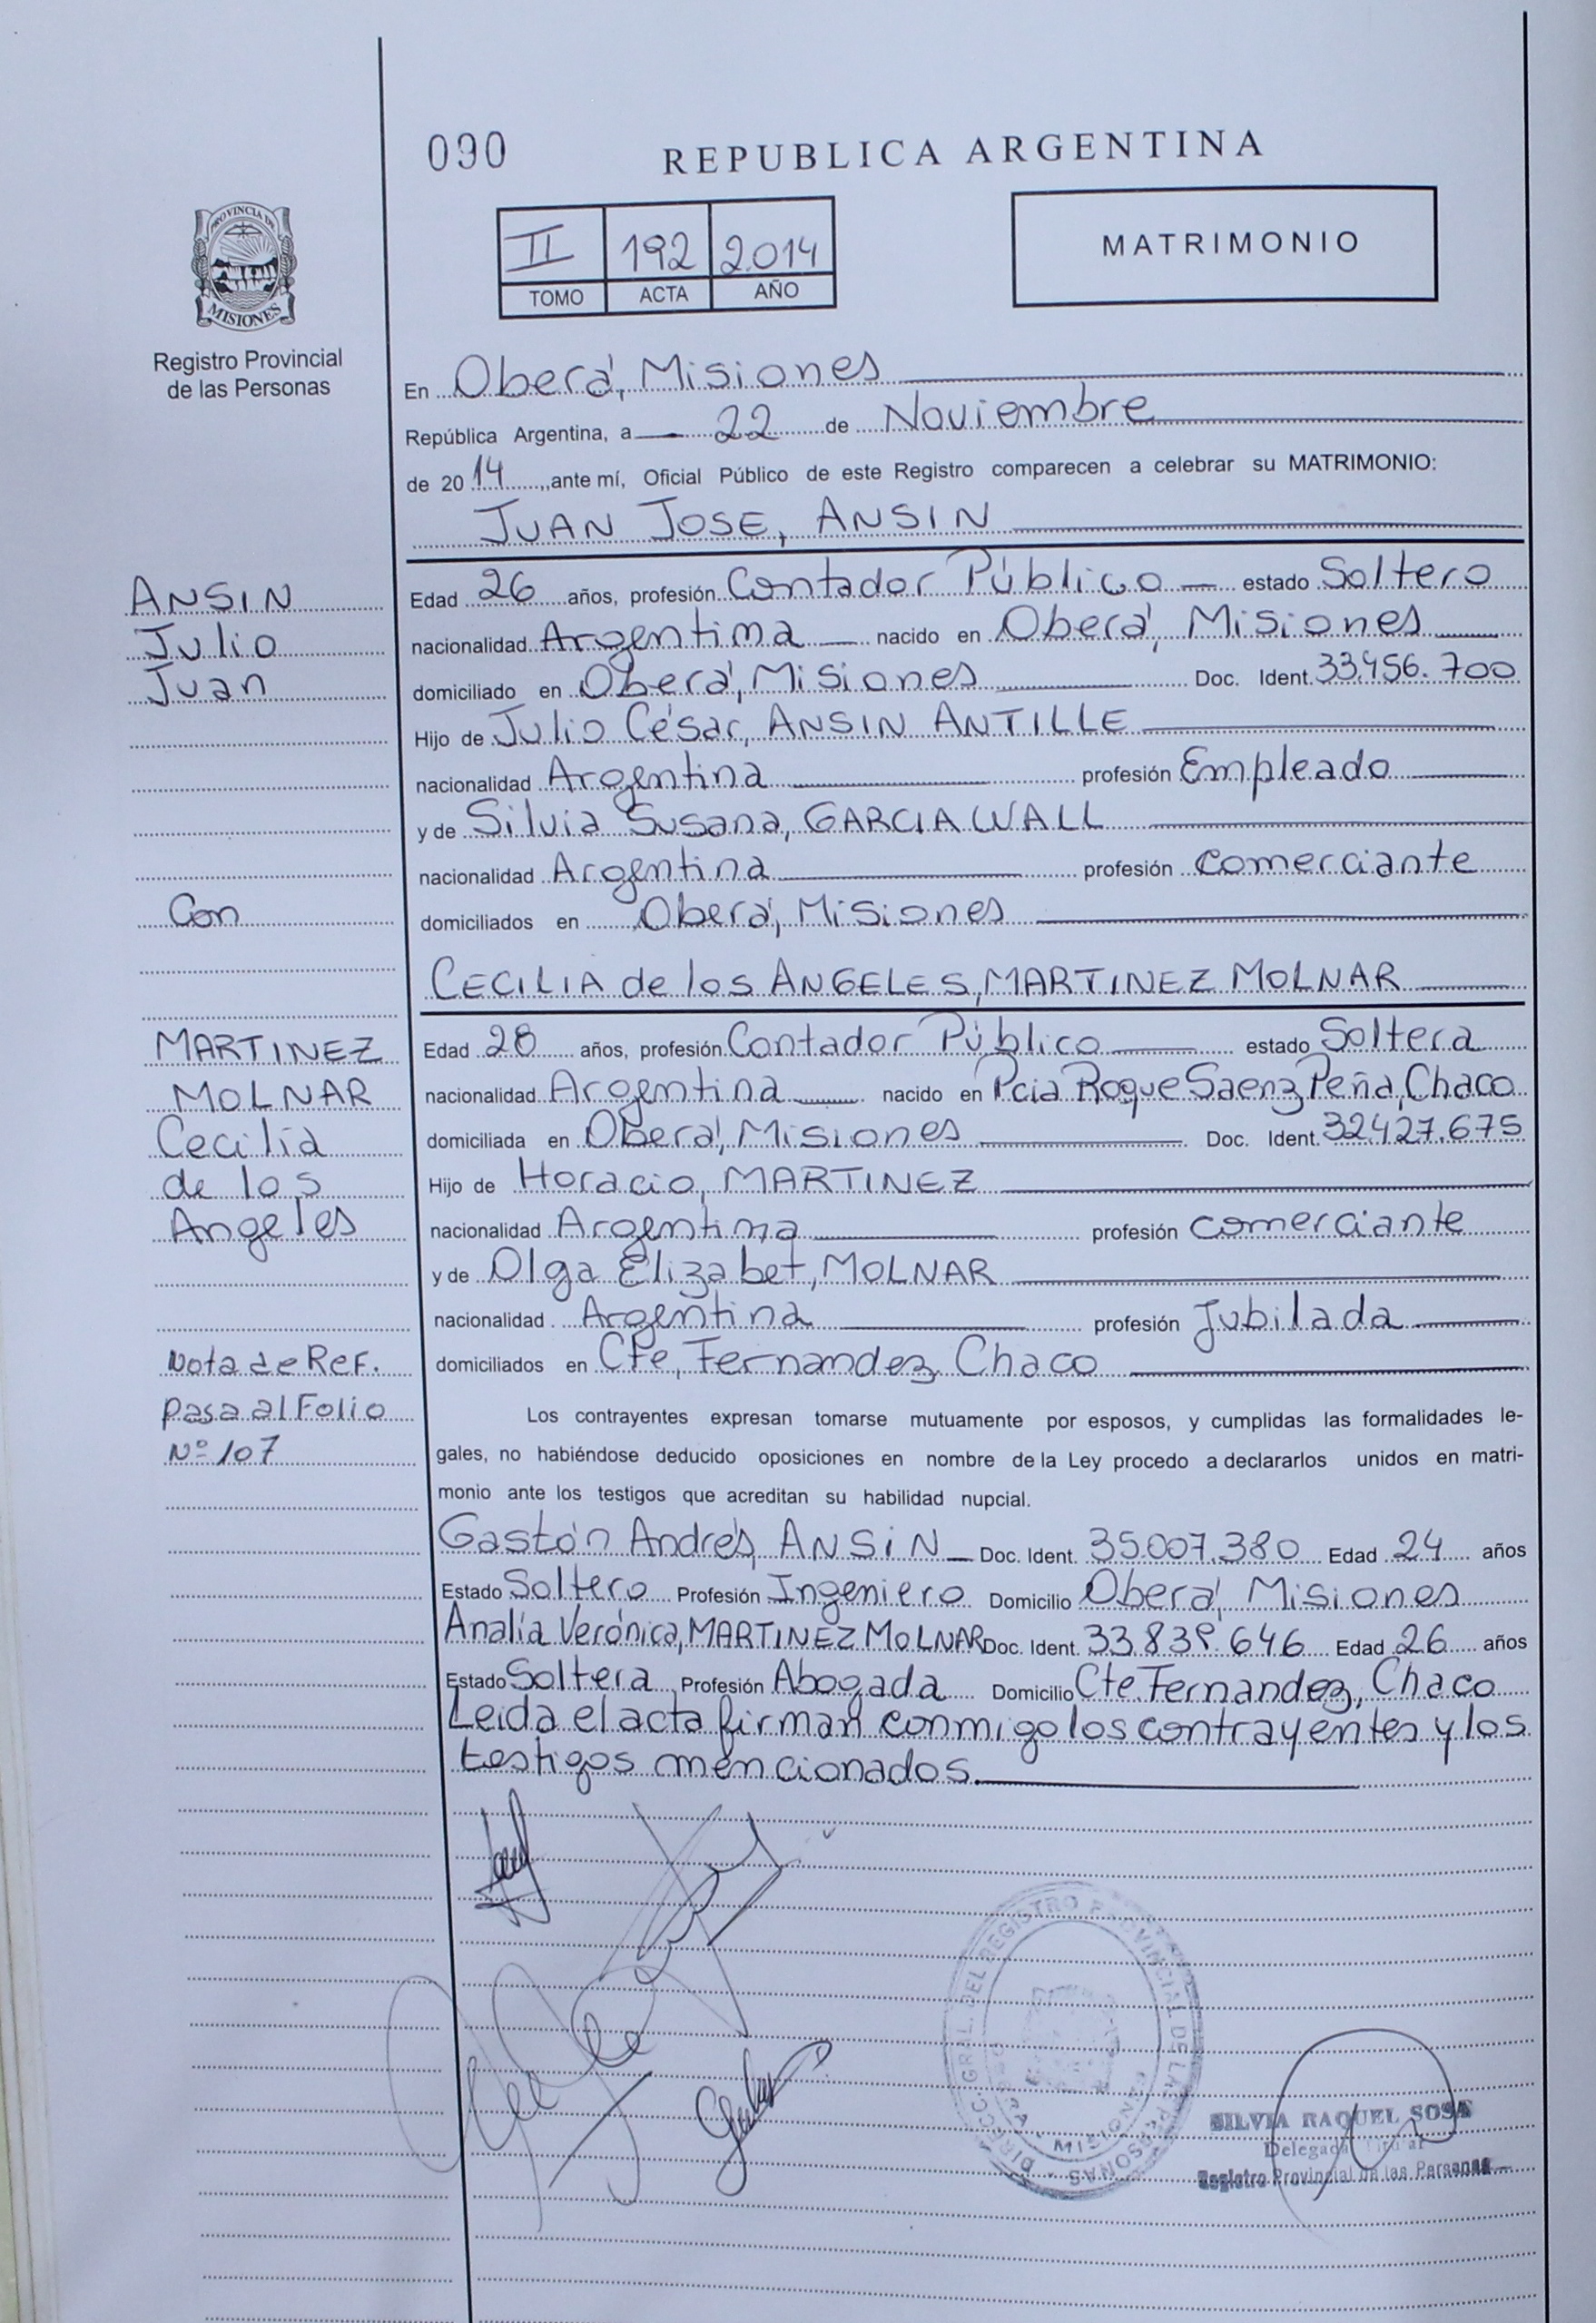 090
REPUBLICA ARGENTINA
PROVINCIA DE
MISIONES
Registro Provincial
de las Personas
II 192 2.014
TOMO ACTA AÑO
MATRIMONIO
En Oberá, Misiones
República Argentina, a 22 de Noviembre
de 2014, ante mí, Oficial Público de este Registro comparecen a celebrar su MATRIMONIO:
JUAN JOSE, ANSIN
ANSIN
Julio
Juan
Edad 26 años, profesión Contador Público estado Soltero
nacionalidad Argentina nacido en Oberá, Misiones
domiciliado en Oberá, Misiones Doc. Ident. 33.456.700
Hijo de Julio César, ANSIN ANTILLE
nacionalidad Argentina profesión Empleado
y de Silvia Susana, GARCIA WALL
nacionalidad Argentina profesión comerciante
Con
domiciliados en Oberá, Misiones
CECILIA de los ANGELES, MARTINEZ MOLNAR
MARTINEZ
MOLNAR
Cecilia
de los
Angeles
Edad 28 años, profesión Contador Público estado Soltera
nacionalidad Argentina nacido en Pcia Roque Saenz Peña, Chaco
domiciliada en Oberá, Misiones Doc. Ident. 32.427.675
Hijo de Horacio, MARTINEZ
nacionalidad Argentina profesión comerciante
y de Olga Elizabet, MOLNAR
nacionalidad Argentina profesión Jubilada
domiciliados en Cte, Fernandez, Chaco
Nota de Ref.
pasa al Folio
Nº 107
Los contrayentes expresan tomarse mutuamente por esposos, y cumplidas las formalidades le-
gales, no habiéndose deducido oposiciones en nombre de la Ley procedo a declararlos unidos en matri-
monio ante los testigos que acreditan su habilidad nupcial.
Gastón Andrés, ANSiN Doc. Ident. 35.007.380 Edad 24 años
Estado Soltero Profesión Ingeniero Domicilio Oberá, Misiones
Analía Verónica, MARTINEZ MOLNAR Doc. Ident. 33.839.646 Edad 26 años
Estado Soltera Profesión Abogada Domicilio Cte. Fernandez, Chaco
Leida el acta firman conmigo los contrayentes y los
testigos mencionados.
DIRECC. GRAL. DEL REGISTRO PROVINCIAL DE LAS PERSONAS
MISIONES
SILVIA RAQUEL SOSA
Delegada Titular
Registro Provincial de las Personas